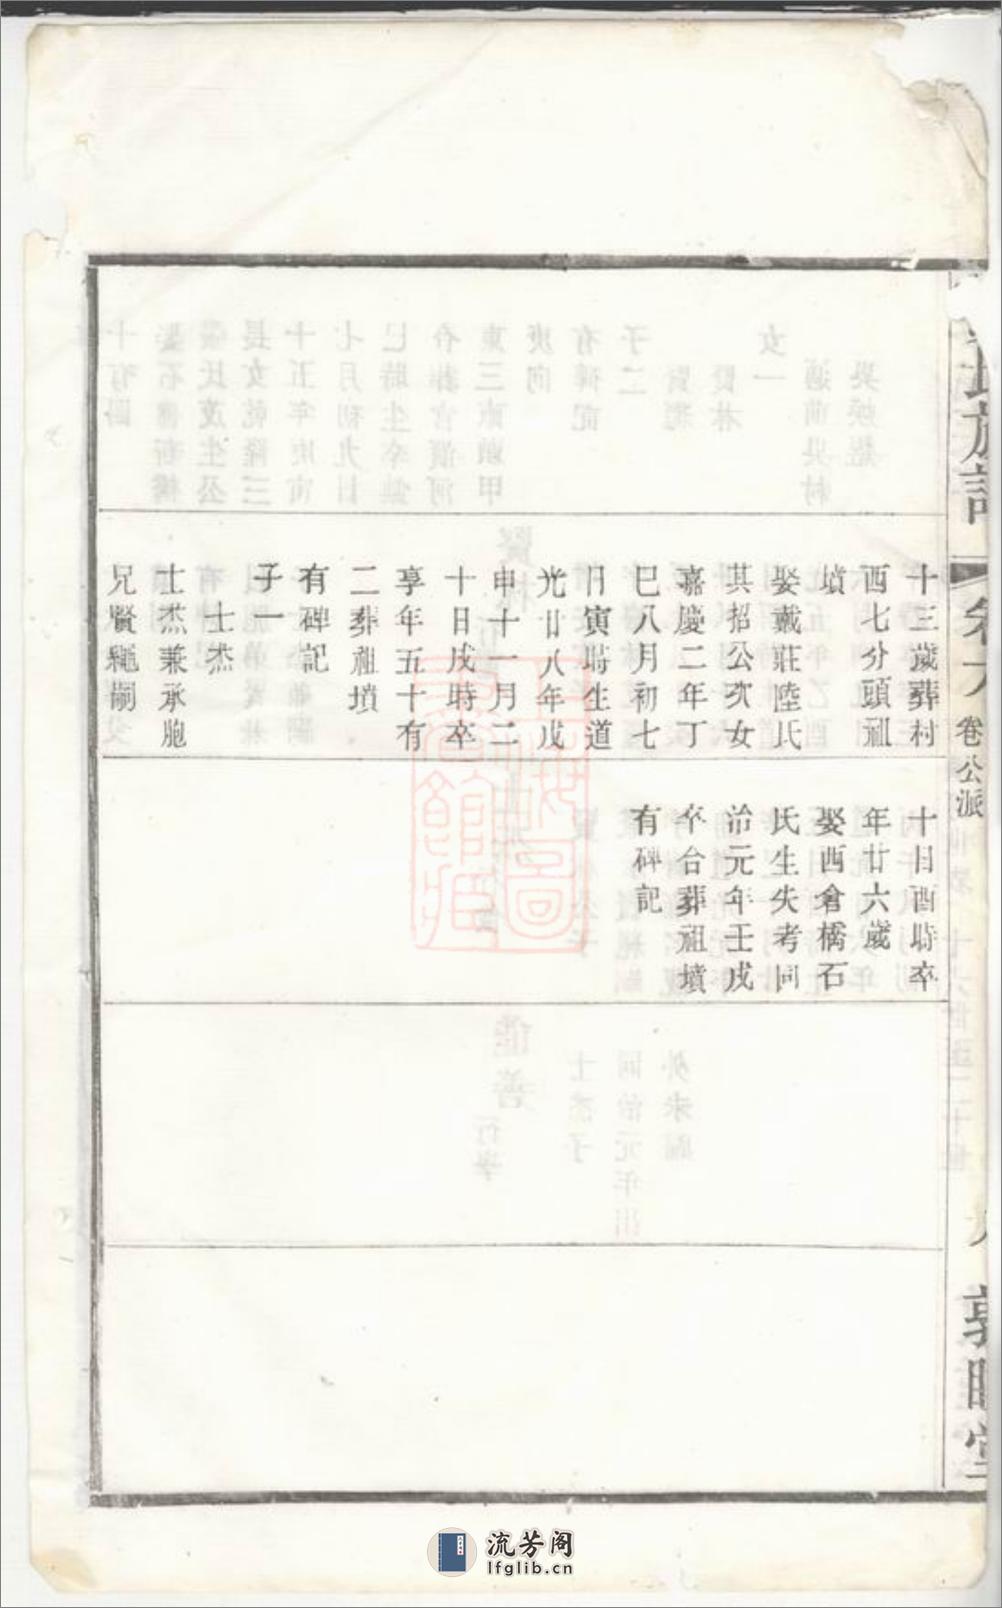 十三歲葬村
西七分頭祖
墳
娶戴莊陸氏
其招公次女
嘉慶二年丁
巳八月初七
日寅時生道
光廿八年戊
申十一月二
十日戌時卒
享年五十有
二葬祖墳
有碑記
子一
士杰
士杰兼承胞
兄賢繩嗣
十日酉時卒
年廿六歲
娶西倉橋石
氏生失考同
治元年壬戌
卒合葬祖墳
有碑記
氏族譜
卷六
卷公派
九
敦睦堂
流芳阁
lfglib.cn